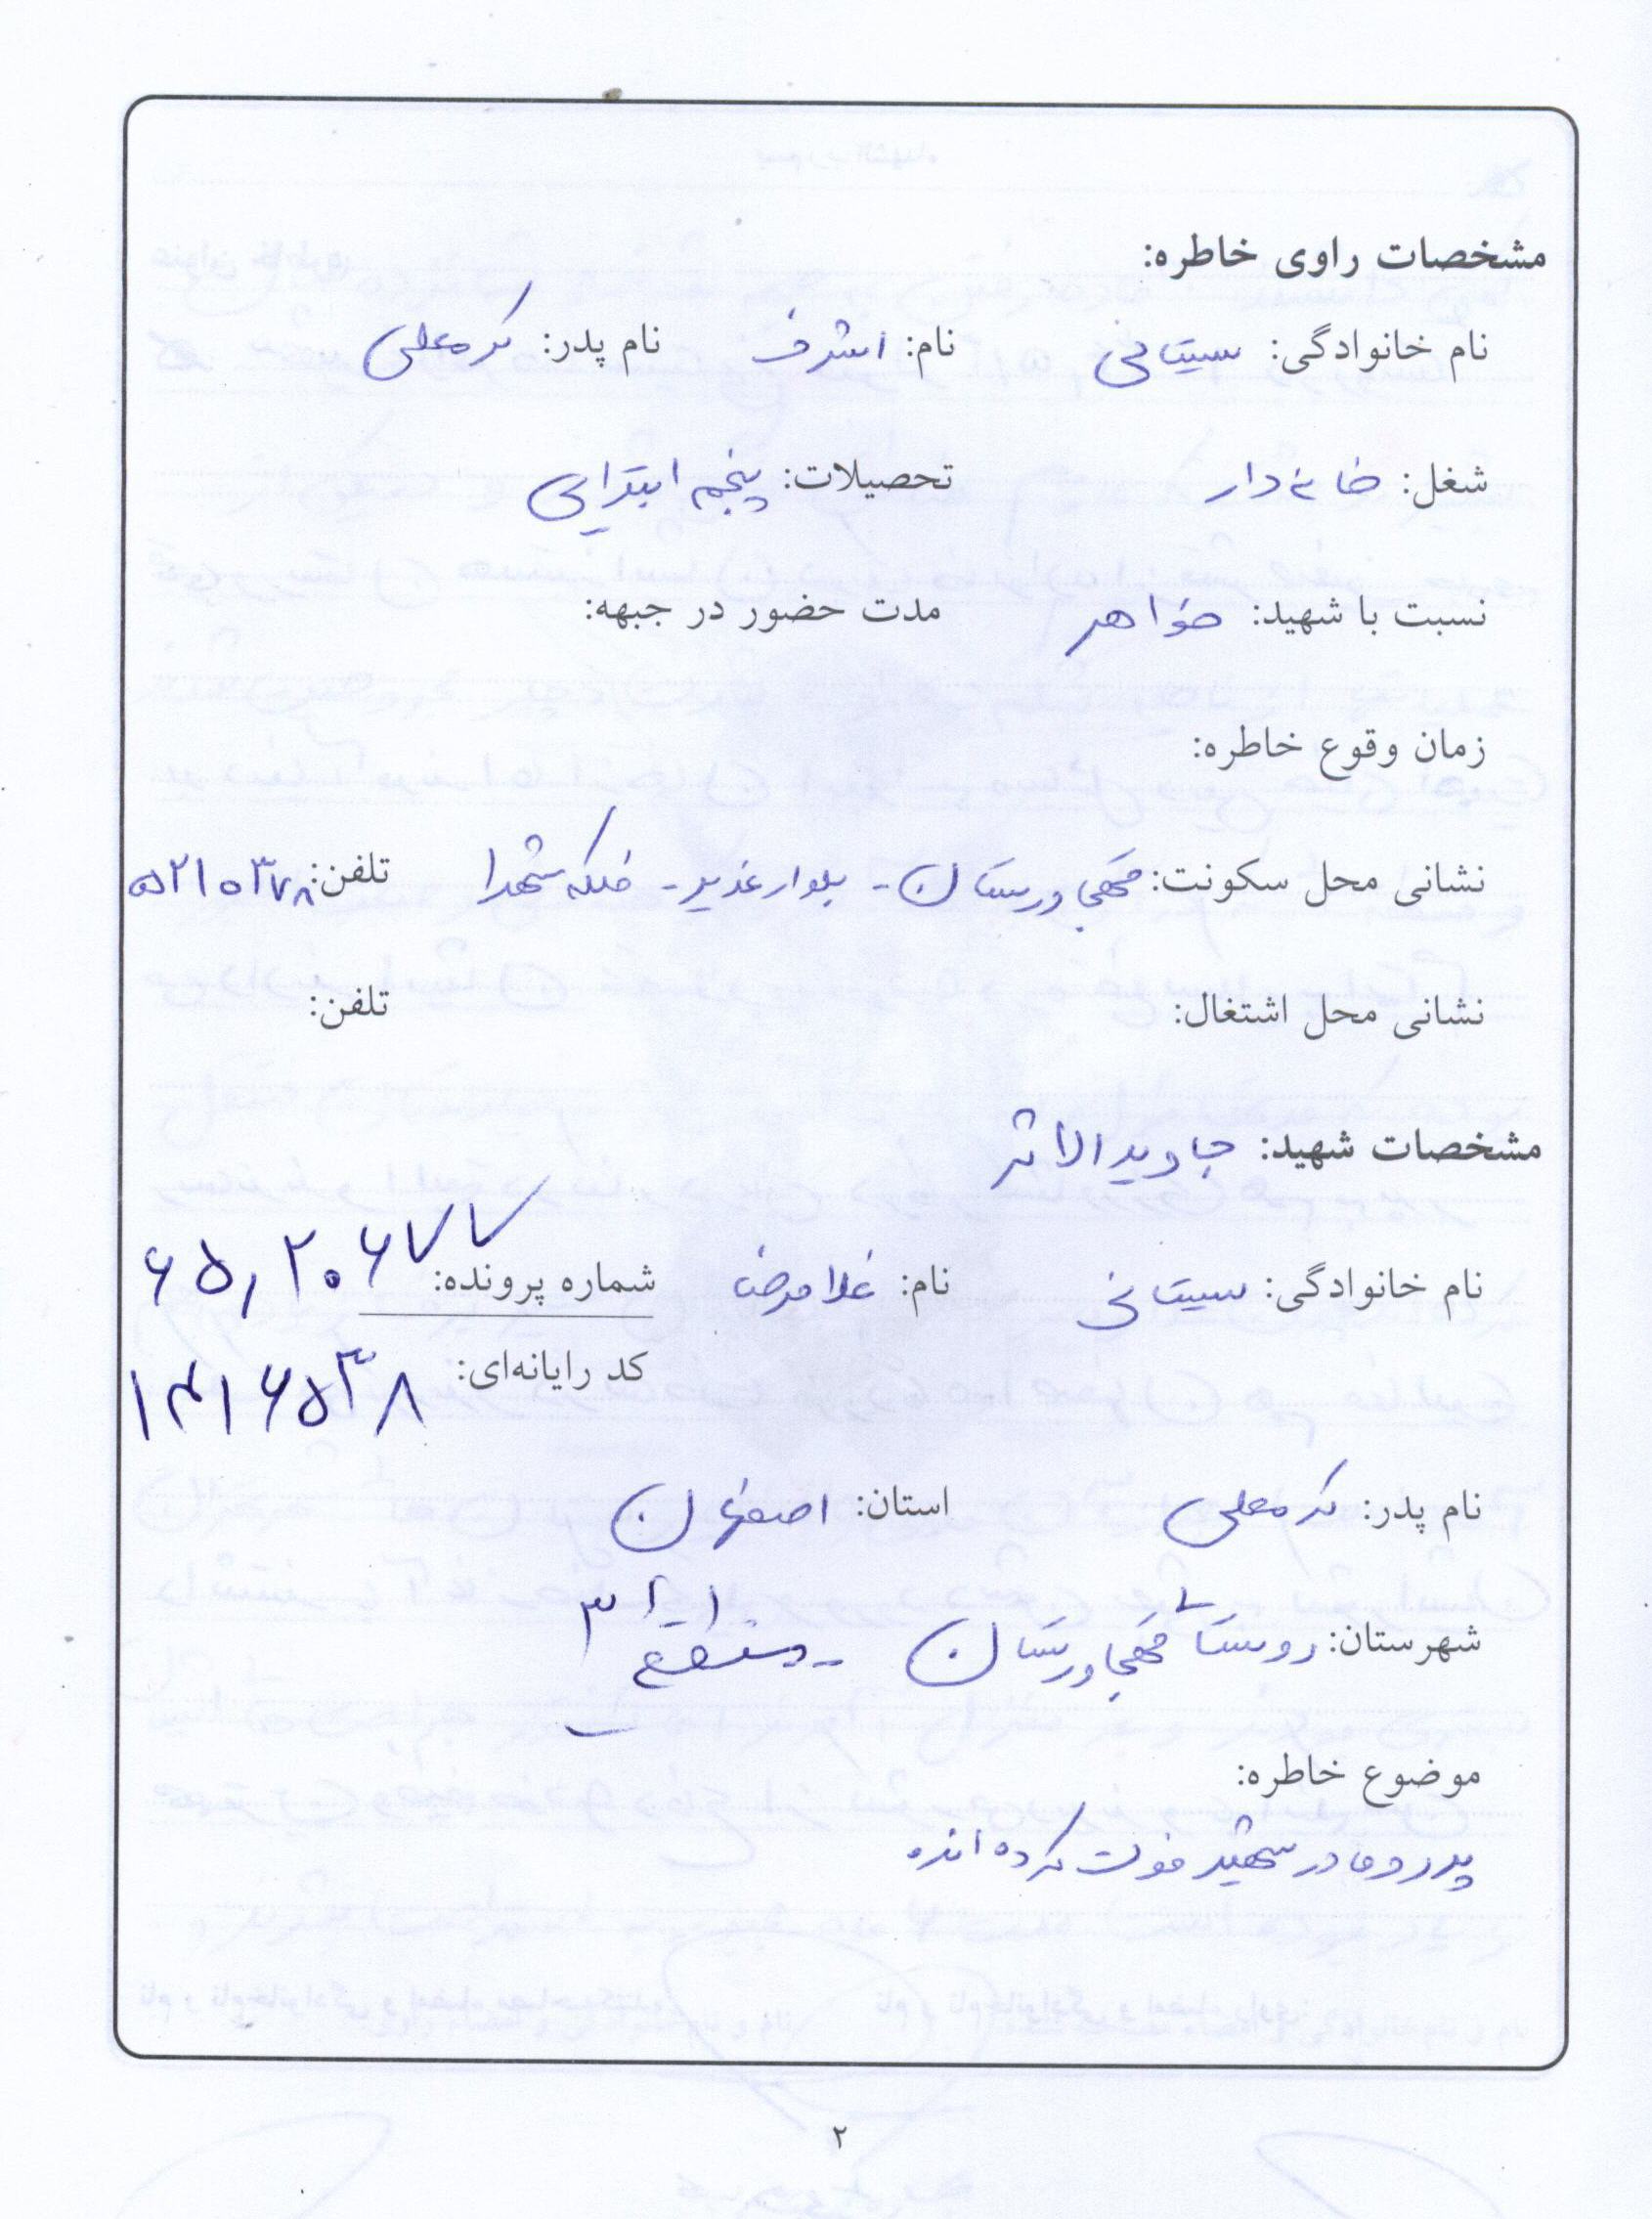 مشخصات راوی خاطره:
نام خانوادگی: سیستانی نام: اشرف نام پدر: کرمعلی
شغل: خانه دار تحصیلات: پنجم ابتدایی
نسبت با شهید: خواهر مدت حضور در جبهه:
زمان وقوع خاطره:
نشانی محل سکونت: قهجاورستان - بلوار غدیر - فلکه شهدا تلفن: ۵۲۱۰۳۷۸
نشانی محل اشتغال: تلفن:
مشخصات شهید: جاویدالاثر
نام خانوادگی: سیستانی نام: غلامرضا شماره پرونده: ۶۵,۲۰۶۷۷
کد رایانه‌ای: ۱۴۱۶۵۳۸
نام پدر: کرمعلی استان: اصفهان
شهرستان: روستا قهجاورستان - ۳
موضوع خاطره:
پدر و مادر شهید فوت کرده اند
۲